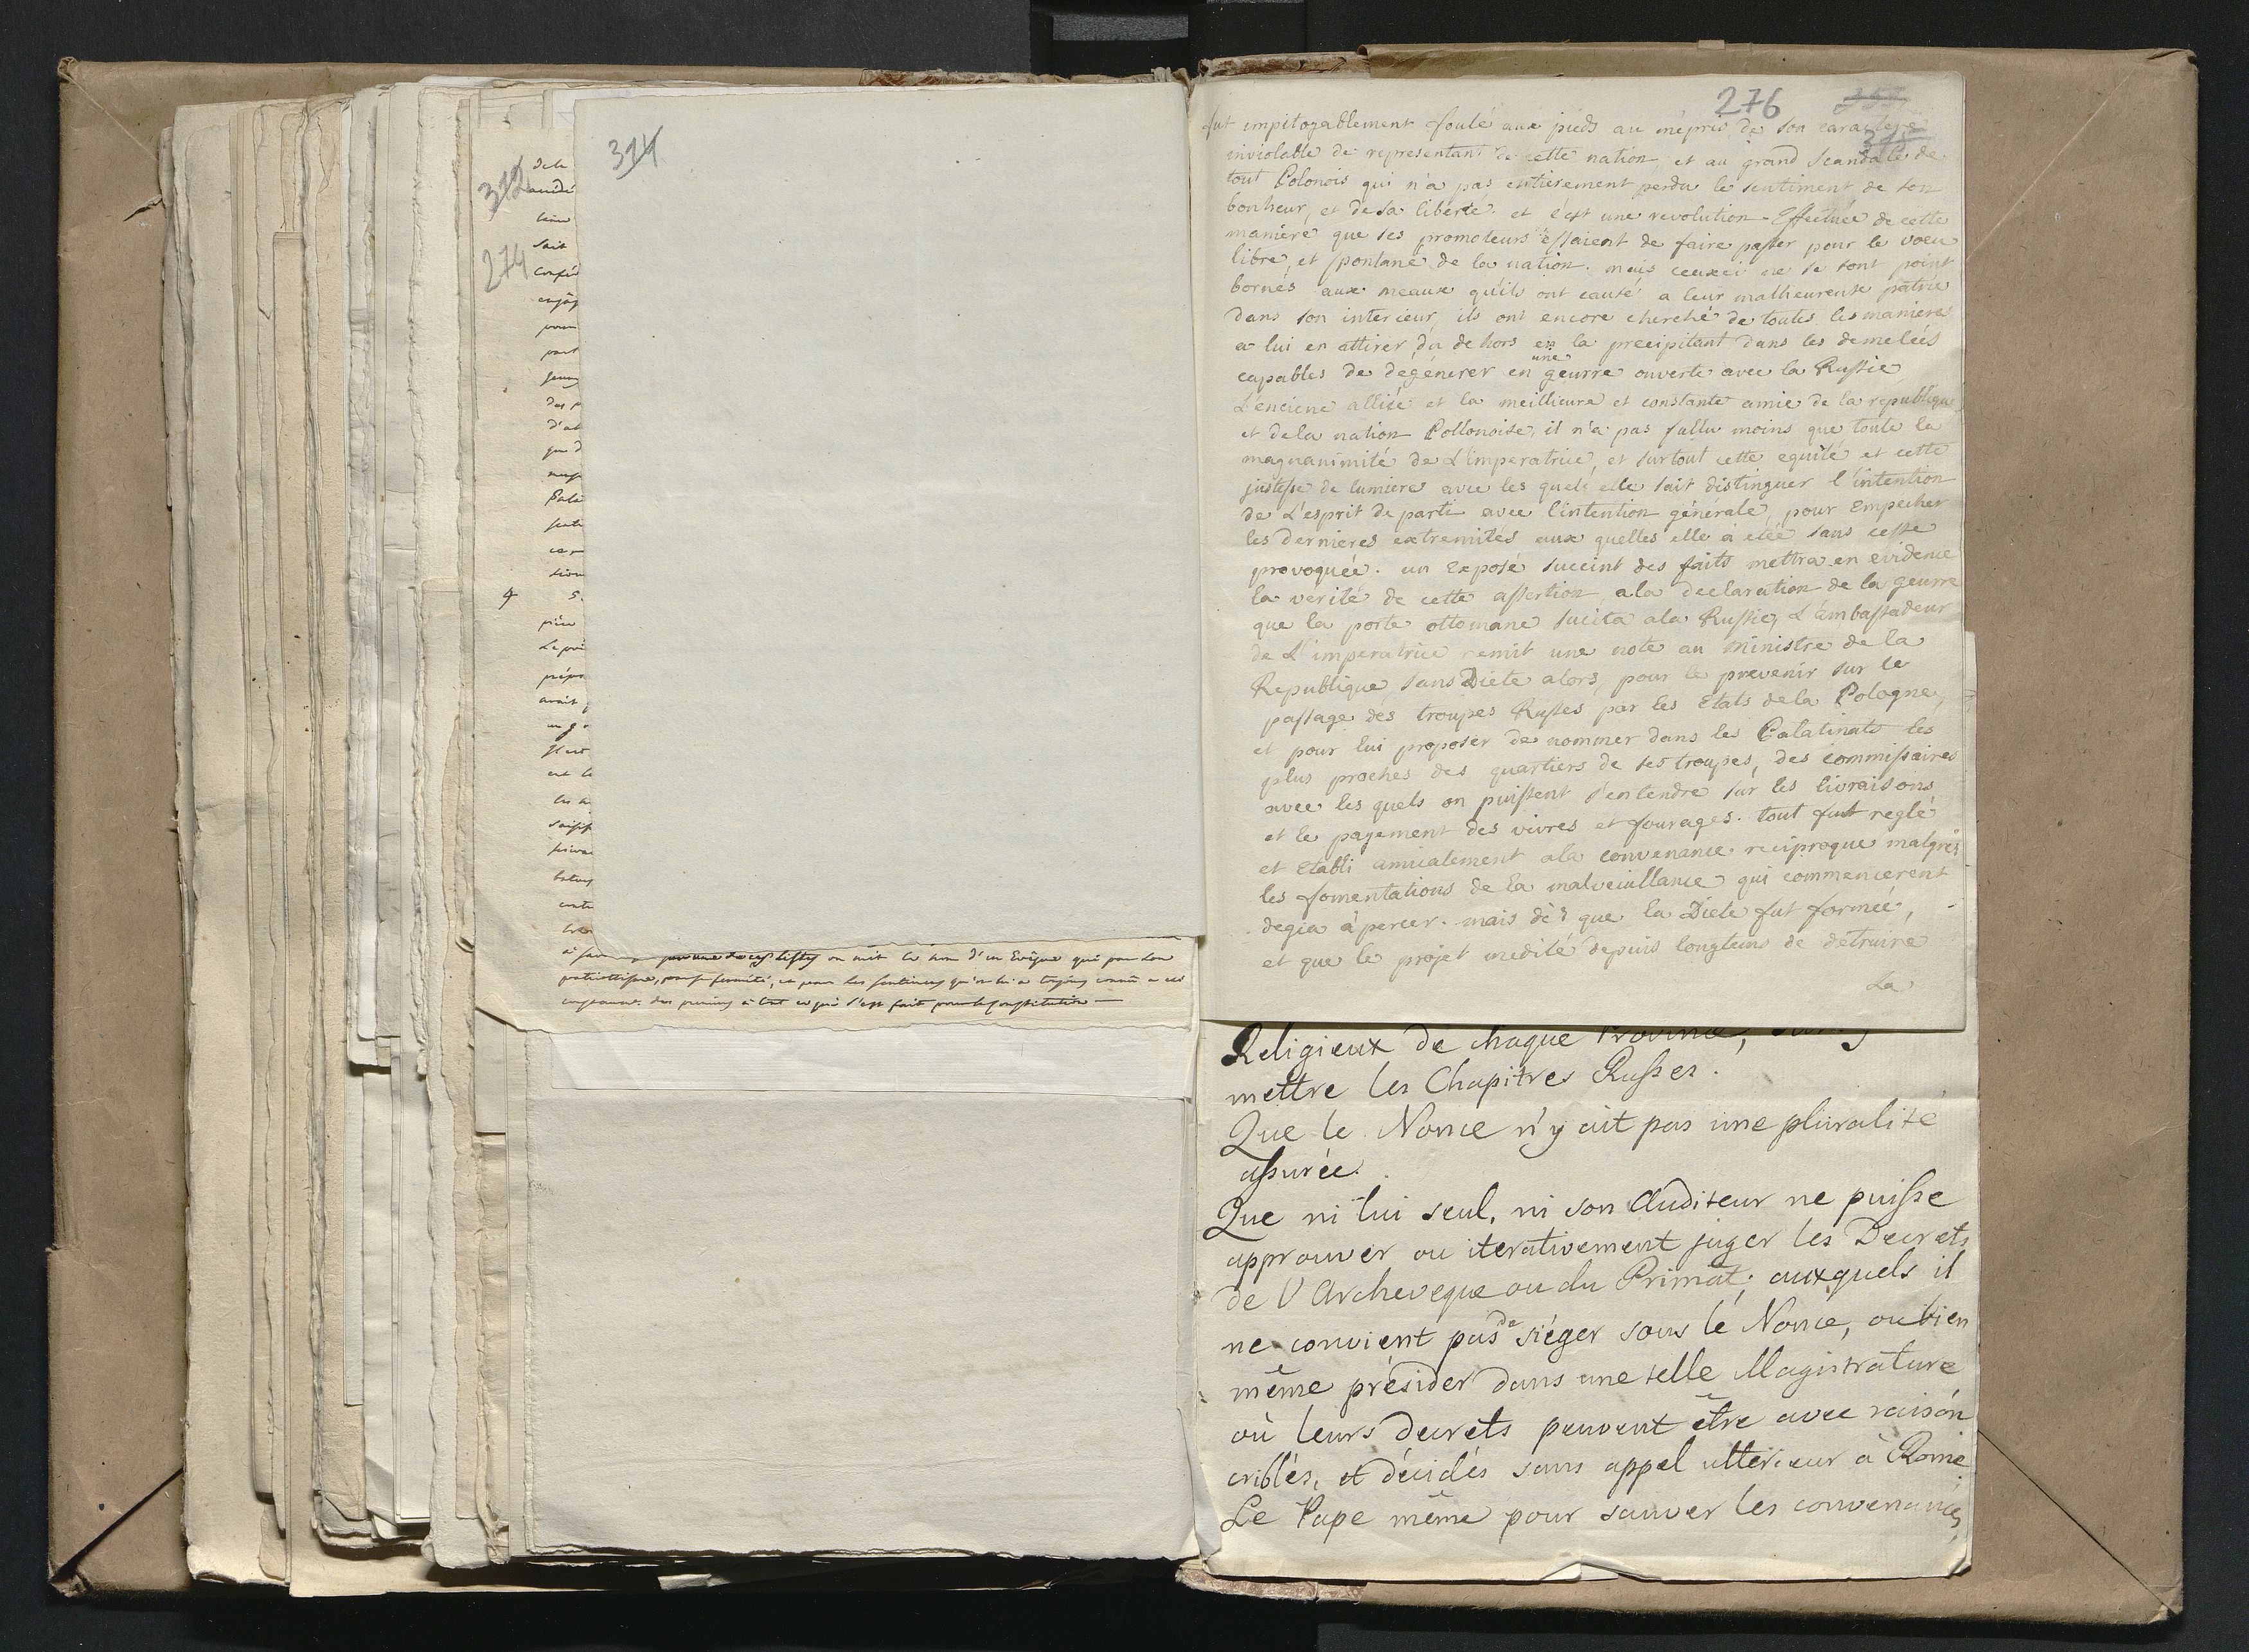 314
312
274
dela
soit
pour
part
d'at
avait
on mit le nom d'un Evêque qui par son
patriotisme, par sa fermeté, et par les sentimens qu'on lui a toujours connu a été
constamt. des premiers à tout ce qui s'est fait pour la Constitution —
276
fut impitoyablement foulé aux pieds au mépris de son caractere
inviolable de representant de cette nation, et au grand scandale de
tout Polonois qui n'a pas entierement perdu le sentiment de son
bonheur, et de sa liberté. et c'est une revolution Effectuée de cette
maniére que ses promoteurs essaient de faire passer pour le voeu
libre, et spontané de la nation. mais ceuxci ne se sont point
bornés aux meaux qu'ils ont causé a leur malheureuse patrie
dans son interieur, ils ont encore cherché de toutes les maniéres
a lui en attirer du dehors en la precipitant dans les demelées
capables de dégénerer en une geurre ouverte avec la Russie
L'enciene alliée et la meillieure et constante amie de la republique
et dela nation Pollonoise, il n'a pas fallu moins que toute la
magnanimité de L'imperatrice, et surtout cette equité et cette
justesse de lumiere avec les quels elle sait distinguer l'intention
de L'esprit de parti avec l'intention générale, pour Empecher
les dernieres extremités aux quelles elle a étée sans cesse
provoquée. un Exposé succint des faits mettra en evidence
la verité de cette assertion, ala declaration de la geurre
que la porte ottomane sucita ala Russie, L'ambassadeur
de L'imperatrice remit une note au Ministre de la
Republique sans Diete alors, pour le prevenir sur le
passage des troupes Russes par les Etats dela Pologne,
et pour lui proposer de nommer dans les Palatinats les
plus proches des quartiers de ses troupes, des commissaires
avec les quels on puissent s'entendre sur les livraisons
et le payement des vivres et fourages. tout fut reglé
et Etabli amicalement ala convenance reciproque malgrés
les fomentations de la malveuillance qui commencerent
degia à percer. mais dès que la Diete fut formée,
et que le projet medité depuis longtems de détruire
La
Religieux de chaque Province,
mettre les Chapitres Russes.
Que le Nonce n'y ait pas une pluralité
assurée.
Que ni lui seul, ni son Auditeur ne puisse
approuver ou iterativement juger les Decrets
de l'Archeveque ou du Primat; auxquels il
ne convient pas de siéger sous le Nonce, ou bien
même présider dans une telle Magistrature
où leurs Decrets peuvent être avec raison
criblés, et décidés sans appel ulterieur à Rome
Le Pape même pour sauver les convenances,